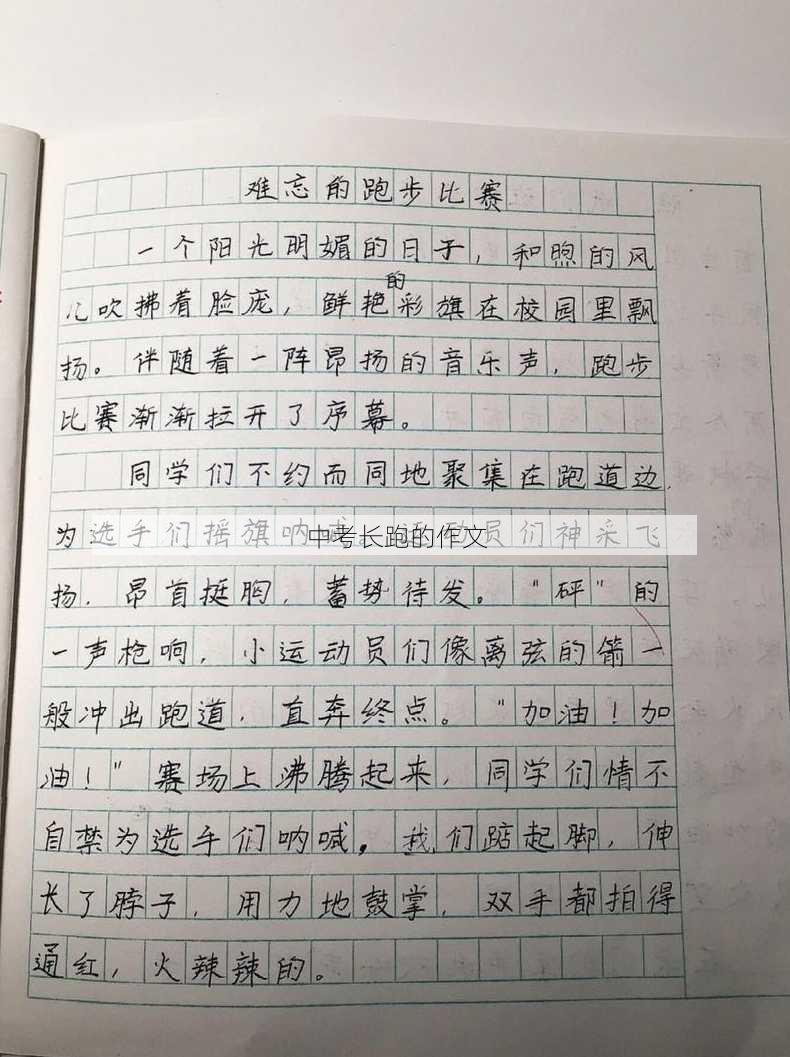 难忘的跑步比赛
一个阳光明媚的日子，和煦的风
儿吹拂着脸庞，鲜艳的彩旗在校园里飘
扬。伴随着一阵昂扬的音乐声，跑步
比赛渐渐拉开了序幕。
同学们不约而同地聚集在跑道边，
为选手们摇旗呐 员们神采飞
中考长跑的作文
扬，昂首挺胸，蓄势待发。“砰”的
一声枪响，小运动员们像离弦的箭一
般冲出跑道，直奔终点。“加油！加
油！”赛场上沸腾起来，同学们情不
自禁为选手们呐喊。我们踮起脚，伸
长了脖子，用力地鼓掌，双手都拍得
通红，火辣辣的。